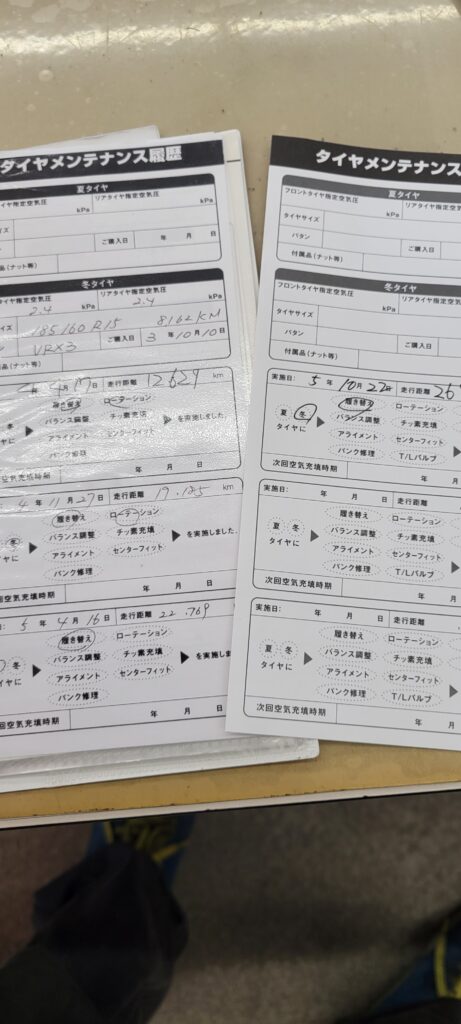 タイヤメンテナンス履歴
夏タイヤ
タイヤ指定空気圧 リアタイヤ指定空気圧
kPa kPa
サイズ
ン ご購入日 年 月 日
品(ナット等)
冬タイヤ
タイヤ指定空気圧 リアタイヤ指定空気圧
2.4 kPa 2.4 kPa
イズ 185/60R15 8162KM
ン VRX3 ご購入日 3年10月10日
品(ナット等)
4月17日 走行距離 12629 km
履き替え ローテーション
バランス調整 チッ素充填 ▶ を実施しました
アライメント センターフィット
パンク修理
空気充填時期 年 月 日
4年11月27日 走行距離 19.185 km
履き替え ローテーション
冬 ▶ バランス調整 チッ素充填 ▶ を実施しました.
アライメント センターフィット
パンク修理
空気充填時期 年 月 日
5年4月16日 走行距離 22.769
履き替え ローテーション
冬 ▶ バランス調整 チッ素充填 ▶ を実施しま
タイヤに アライメント センターフィット
パンク修理
次回空気充填時期 年 月 日
タイヤメンテナンス
夏タイヤ
フロントタイヤ指定空気圧 リアタイヤ指定空
kPa
タイヤサイズ
パタン ご購入日
付属品(ナット等)
冬タイヤ
フロントタイヤ指定空気圧 リアタイヤ指定空
kPa
タイヤサイズ
パタン ご購入日
付属品(ナット等)
実施日: 5年10月22日 走行距離 26
夏 冬 履き替え ローテーション
タイヤに ▶ バランス調整 チッ素充填
アライメント センターフィット
パンク修理 T/Lバルブ
次回空気充填時期 年 月
実施日: 年 月 日 走行距離
夏 冬 履き替え ローテーション
タイヤに ▶ バランス調整 チッ素充填
アライメント センターフィット
パンク修理 T/Lバルブ
次回空気充填時期 年 月
実施日: 年 月 日 走行距離
夏 冬 履き替え ローテーション
タイヤに ▶ バランス調整 チッ素充填
アライメント センターフィット
パンク修理 T/Lバルブ
次回空気充填時期 年 月